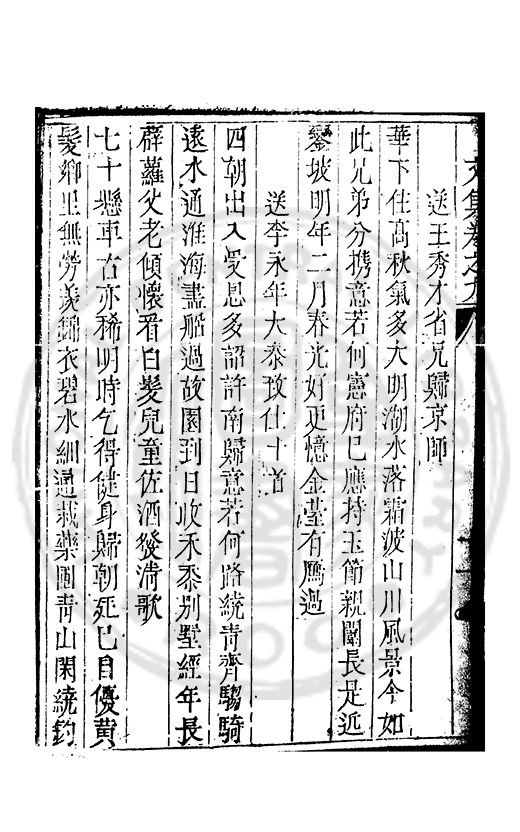 文集卷之九
送王秀才省兄歸京師
華下住高秋氣多大明湖水落霜波山川風景今如
此兄弟分携意若何憲府已應持玉節親闈長是近
鑾坡明年二月春光好更憶金臺有鴈過
送李永年大泰致仕十首
四朝出入受恩多詔許南歸意若何路繞青齊騶騎
遠水通淮海畫船過故園到日收禾黍別墅經年長
薜蘿父老傾懷看白髮兒童佐酒發清歌
七十懸車古亦稀明時乞得健身歸朝班已自優黃
髮鄉里無勞羨錦衣碧水細通栽藥圃青山閑繞釣